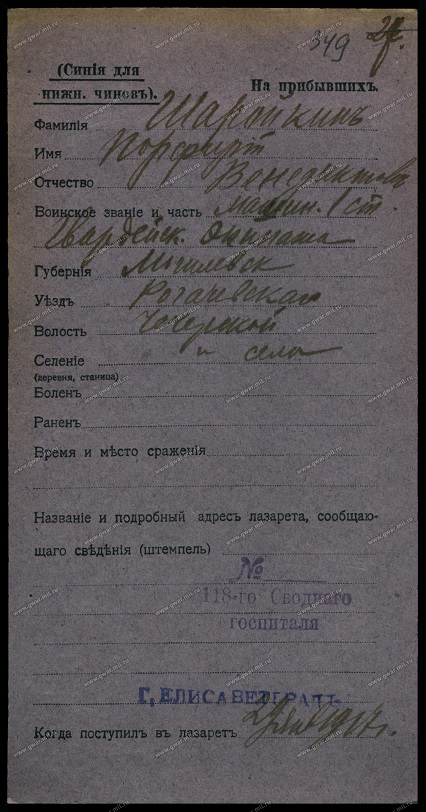 349
(Синія для
нижн. чиновъ).
На прибывшихъ.
Фамилія Шаройкинъ
Имя Порфирт
Отчество Венедиктовъ
Воинское званіе и часть машин. 1 ст.
Гвардейск. Экипажа
Губернія Могилевск
Уѣздъ Рогачевская
Волость Чечерской
Селеніе и село
(деревня, станица)
Боленъ
Раненъ
Время и мѣсто сраженія
Названіе и подробный адресъ лазарета, сообщаю-
щаго свѣдѣнія (штемпель)
№
118-го Своднаго
госпиталя
Г, ЕЛИСАВЕТГРАДЪ
Когда поступилъ въ лазаретъ 1917г.